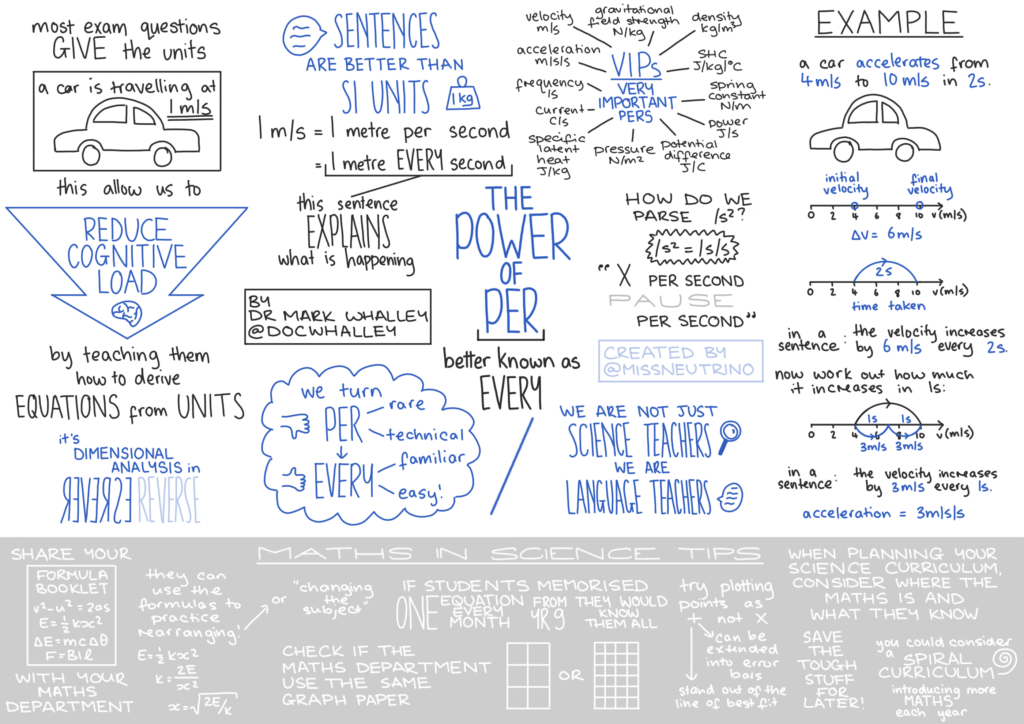 most exam questions
GIVE the units
a car is travelling at
1 m/s
this allow us to
REDUCE
COGNITIVE
LOAD
by teaching them
how to derive
EQUATIONS from UNITS
it's
DIMENSIONAL
ANALYSIS in
REVERSE REVERSE
SENTENCES
ARE BETTER THAN
SI UNITS
1 kg
1 m/s = 1 metre per second
= 1 metre EVERY second
this sentence
EXPLAINS
what is happening
BY
DR MARK WHALLEY
@DOCWHALLEY
we turn
PER
rare
technical
EVERY
familiar
easy!
THE
POWER
OF
PER
better known as
EVERY
/
velocity
m/s
gravitational
field strength
N/kg
density
kg/m³
acceleration
m/s/s
SHC
J/kg/°C
frequency
/s
spring
constant
N/m
current
C/s
power
J/s
specific
latent
heat
J/kg
pressure
N/m²
potential
difference
J/C
VIPs
VERY
IMPORTANT
PERS
HOW DO WE
PARSE /s²?
/s² = /s/s
"X PER SECOND
PAUSE
PER SECOND"
CREATED BY
@MISSNEUTRINO
WE ARE NOT JUST
SCIENCE TEACHERS
WE ARE
LANGUAGE TEACHERS
EXAMPLE
a car accelerates from
4m/s to 10 m/s in 2s.
initial
velocity
final
velocity
0 2 4 6 8 10 v(m/s)
Δv = 6m/s
2s
0 2 4 6 8 10 v(m/s)
time taken
in a
sentence: the velocity increases
by 6 m/s every 2s.
now work out how much
it increases in 1s:
1s 1s
0 2 4 6 8 10 v(m/s)
3m/s 3m/s
in a
sentence: the velocity increases
by 3m/s every 1s.
acceleration = 3m/s/s
MATHS IN SCIENCE TIPS
SHARE YOUR
FORMULA
BOOKLET
v²-u² = 2as
E=½kx²
ΔE=mcΔθ
F=BIl
WITH YOUR
MATHS
DEPARTMENT
they can
use the
formulas to
practice
rearranging!
E=½kx²
k=2E/x²
x=√2E/k
or "changing
the
subject"
IF STUDENTS MEMORISED
ONE EQUATION EVERY MONTH FROM YR 9 THEY WOULD KNOW THEM ALL
CHECK IF THE
MATHS DEPARTMENT
USE THE SAME
GRAPH PAPER
OR
try plotting
points as
+ not X
can be
extended
into error
bars
stand out of the
line of best fit
WHEN PLANNING YOUR
SCIENCE CURRICULUM,
CONSIDER WHERE THE
MATHS IS AND
WHAT THEY KNOW
SAVE
THE
TOUGH
STUFF
FOR
LATER!
you could consider
a SPIRAL
CURRICULUM
introducing more
MATHS
each year